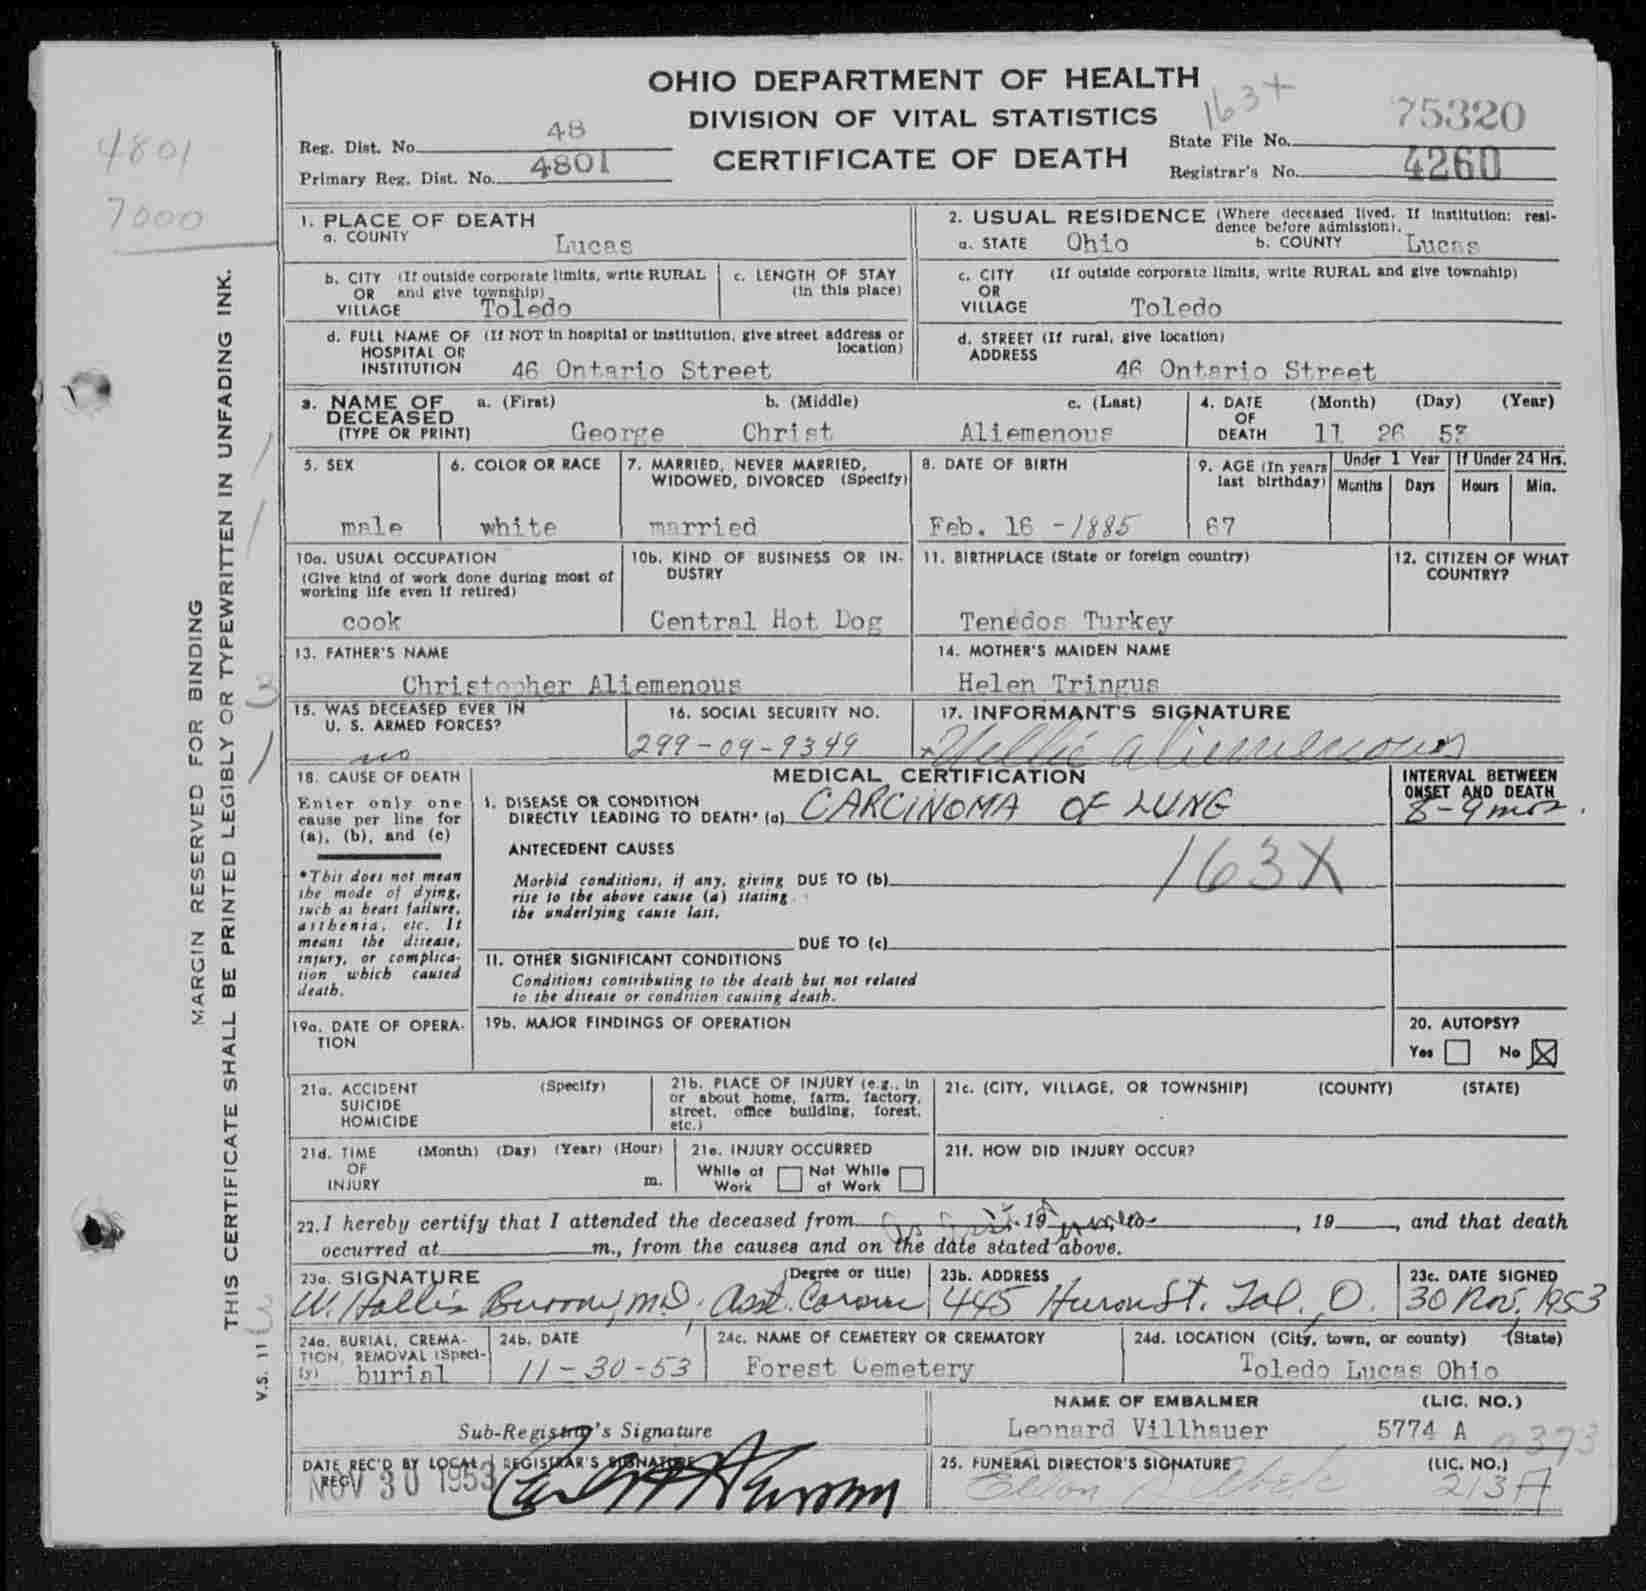 OHIO DEPARTMENT OF HEALTH
DIVISION OF VITAL STATISTICS
CERTIFICATE OF DEATH
163+
75320
Reg. Dist. No. 48
State File No.
Primary Reg. Dist. No. 4801
Registrar's No. 4260
4801
7000
MARGIN RESERVED FOR BINDING
THIS CERTIFICATE SHALL BE PRINTED LEGIBLY OR TYPEWRITTEN IN UNFADING INK.
V.S. 11
1. PLACE OF DEATH
a. COUNTY Lucas
2. USUAL RESIDENCE (Where deceased lived. If institution: residence before admission).
a. STATE Ohio b. COUNTY Lucas
b. CITY (If outside corporate limits, write RURAL
OR and give township)
VILLAGE Toledo
c. LENGTH OF STAY
(in this place)
c. CITY (If outside corporate limits, write RURAL and give township)
OR
VILLAGE Toledo
d. FULL NAME OF (If NOT in hospital or institution, give street address or
HOSPITAL OR location)
INSTITUTION 46 Ontario Street
d. STREET (If rural, give location)
ADDRESS
46 Ontario Street
3. NAME OF DECEASED (TYPE OR PRINT)
a. (First) b. (Middle) c. (Last)
George Christ Aliemenous
4. DATE OF DEATH (Month) (Day) (Year)
11 26 53
5. SEX
male
6. COLOR OR RACE
white
7. MARRIED, NEVER MARRIED,
WIDOWED, DIVORCED (Specify)
married
8. DATE OF BIRTH
Feb. 16 -1885
9. AGE (In years
last birthday)
67
Under 1 Year
Months Days
If Under 24 Hrs.
Hours Min.
10a. USUAL OCCUPATION
(Give kind of work done during most of
working life even if retired)
cook
10b. KIND OF BUSINESS OR IN-
DUSTRY
Central Hot Dog
11. BIRTHPLACE (State or foreign country)
Tenedos Turkey
12. CITIZEN OF WHAT
COUNTRY?
13. FATHER'S NAME
Christopher Aliemenous
14. MOTHER'S MAIDEN NAME
Helen Tringus
15. WAS DECEASED EVER IN
U. S. ARMED FORCES?
no
16. SOCIAL SECURITY NO.
299-09-9349
17. INFORMANT'S SIGNATURE
Nellie Aliemenous
18. CAUSE OF DEATH
Enter only one
cause per line for
(a), (b), and (c)
*This does not mean
the mode of dying,
such as heart failure,
asthenia, etc. It
means the disease,
injury, or complica-
tion which caused
death.
MEDICAL CERTIFICATION
INTERVAL BETWEEN
ONSET AND DEATH
1. DISEASE OR CONDITION
DIRECTLY LEADING TO DEATH* (a) CARCINOMA OF LUNG
8-9 mos.
ANTECEDENT CAUSES
163X
Morbid conditions, if any, giving DUE TO (b)
rise to the above cause (a) stating
the underlying cause last.
DUE TO (c)
II. OTHER SIGNIFICANT CONDITIONS
Conditions contributing to the death but not related
to the disease or condition causing death.
19a. DATE OF OPERA-
TION
19b. MAJOR FINDINGS OF OPERATION
20. AUTOPSY?
Yes No
21a. ACCIDENT (Specify)
SUICIDE
HOMICIDE
21b. PLACE OF INJURY (e.g., in
or about home, farm, factory,
street, office building, forest,
etc.)
21c. (CITY, VILLAGE, OR TOWNSHIP) (COUNTY) (STATE)
21d. TIME (Month) (Day) (Year) (Hour)
OF
INJURY m.
21e. INJURY OCCURRED
While at Not While
Work at Work
21f. HOW DID INJURY OCCUR?
22. I hereby certify that I attended the deceased from 19 , 19 , and that death
occurred at m., from the causes and on the date stated above.
23a. SIGNATURE (Degree or title)
W. Hollis M.D. Asst. Coroner
23b. ADDRESS
445 Huron St. Tol. O.
23c. DATE SIGNED
30 Nov. 1953
24a. BURIAL, CREMA-
TION, REMOVAL (Speci-
fy) burial
24b. DATE
11-30-53
24c. NAME OF CEMETERY OR CREMATORY
Forest Cemetery
24d. LOCATION (City, town, or county) (State)
Toledo Lucas Ohio
Sub-Registrar's Signature
NAME OF EMBALMER (LIC. NO.)
Leonard Villhauer 5774 A
DATE REC'D BY LOCAL
REG.
NOV 30 1953
REGISTRAR'S SIGNATURE
25. FUNERAL DIRECTOR'S SIGNATURE (LIC. NO.)
213A